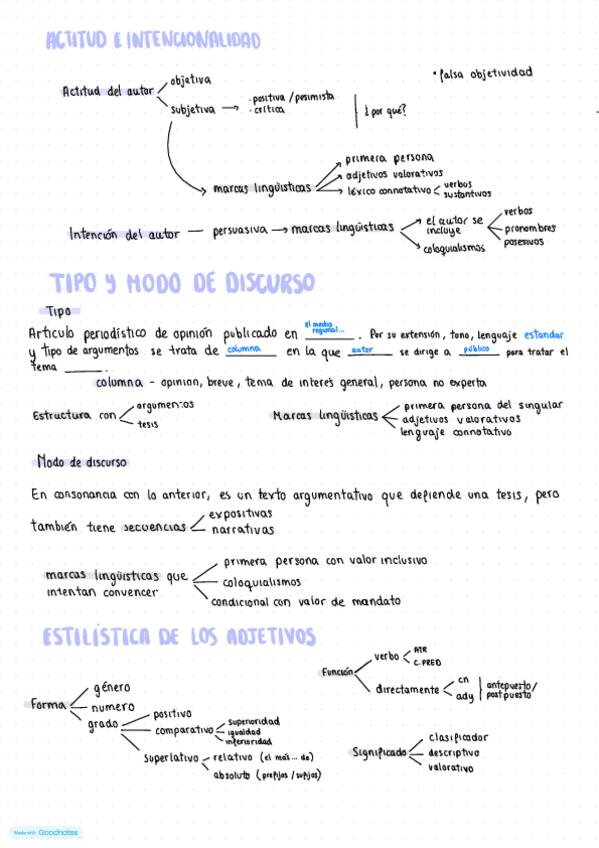 ACTITUD E INTENCIONALIDAD
• falsa objetividad
Actitud del autor
objetiva
subjetiva → · positiva / pesimista
· crítica
¿por qué?
marcas lingüísticas
primera persona
adjetivos valorativos
léxico connotativo
verbos
sustantivos
Intención del autor — persuasiva → marcas lingüísticas
el autor se
incluye
verbos
pronombres
posesivos
coloquialismos
TIPO Y MODO DE DISCURSO
Tipo
Artículo periodístico de opinión publicado en el medio regional... . Por su extensión, tono, lenguaje estandar
y tipo de argumentos se trata de columna en la que autor se dirige a público para tratar el
tema ______.
columna - opinion, breve, tema de interés general, persona no experta
Estructura con
argumentos
tesis
Marcas lingüísticas
primera persona del singular
adjetivos valorativos
lenguaje connotativo
Modo de discurso
En consonancia con lo anterior, es un texto argumentativo que defiende una tesis, pero
también tiene secuencias
expositivas
narrativas
marcas lingüísticas que
intentan convencer
primera persona con valor inclusivo
coloquialismos
condicional con valor de mandato
ESTILÍSTICA DE LOS ADJETIVOS
Forma
género
numero
grado
positivo
comparativo
superioridad
igualdad
inferioridad
superlativo
relativo (el más... de)
absoluto (prefijos / sufijos)
Función
verbo
ATR
C.PRED
directamente
cn
ady
antepuesto/
postpuesto
Significado
clasificador
descriptivo
valorativo
Made with Goodnotes